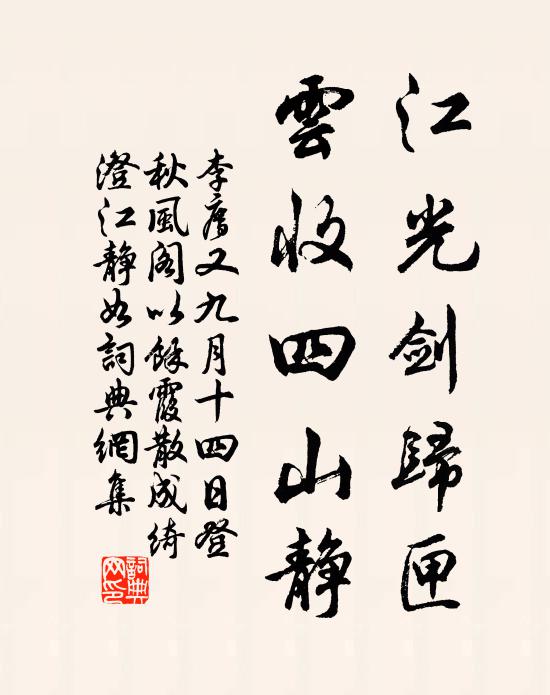 江光剑歸匣
雲收四山静
李廌又九月十四日登
秋風阁以餘霞散成綺
澄江静如詞典網集
詞典网印